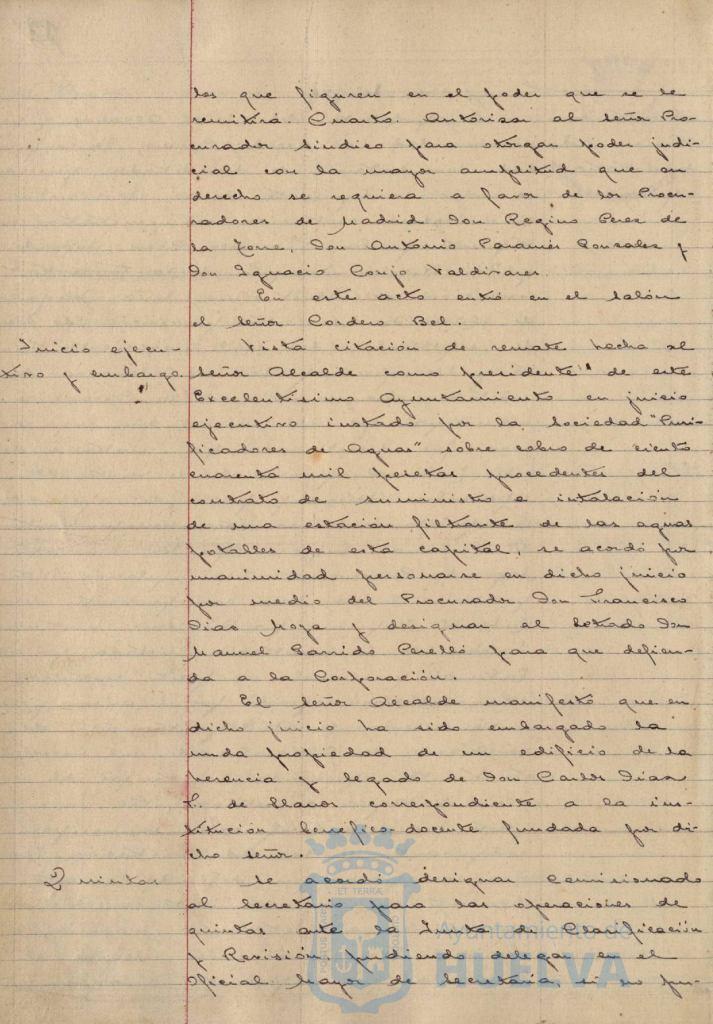 los que figuren en el poder que se le
remitirá. Cuarto. Autorizar al señor Pro-
curador Síndico para otorgar poder judi-
cial con la mayor amplitud que en
derecho se requiera a favor de los Procu-
radores de Madrid Don Regino Perez de
la Torre, Don Antonio Paramés Gonzalez y
Don Ignacio Corujo Valdivares.
En este acto entró en el salón
el señor Cordero Bel.
Juicio ejecu-
tivo y embargo.
Vista citación de remate hecha al
señor Alcalde como presidente de este
Excelentísimo Ayuntamiento en juicio
ejecutivo instado por la Sociedad "Puri-
ficadores de Aguas" sobre cobro de ciento
cuarenta mil pesetas procedentes del
contrato de suministro e intalación
de una estación filtrante de las aguas
potables de esta capital, se acordó por
unanimidad personarse en dicho juicio
por medio del Procurador Don Francisco
Díaz Moya y designar al letrado Don
Manuel Garrido Perelló para que defien-
da a la Corporación.
El señor Alcalde manifestó que en
dicho juicio ha sido embargado la
nuda propiedad de un edificio de la
herencia y legado de Don Carlos Díaz
F. de Llanos correspondiente a la ins-
titución benéfico-docente fundada por di-
cho señor.
Quintas
Se acordó designar Comisionado
al Secretario para las operaciones de
quintas ante la Junta de Clasificación
y Revisión pudiendo delegar en el
Oficial Mayor de Secretaría, si no pu-
Ayuntamiento de
HUELVA